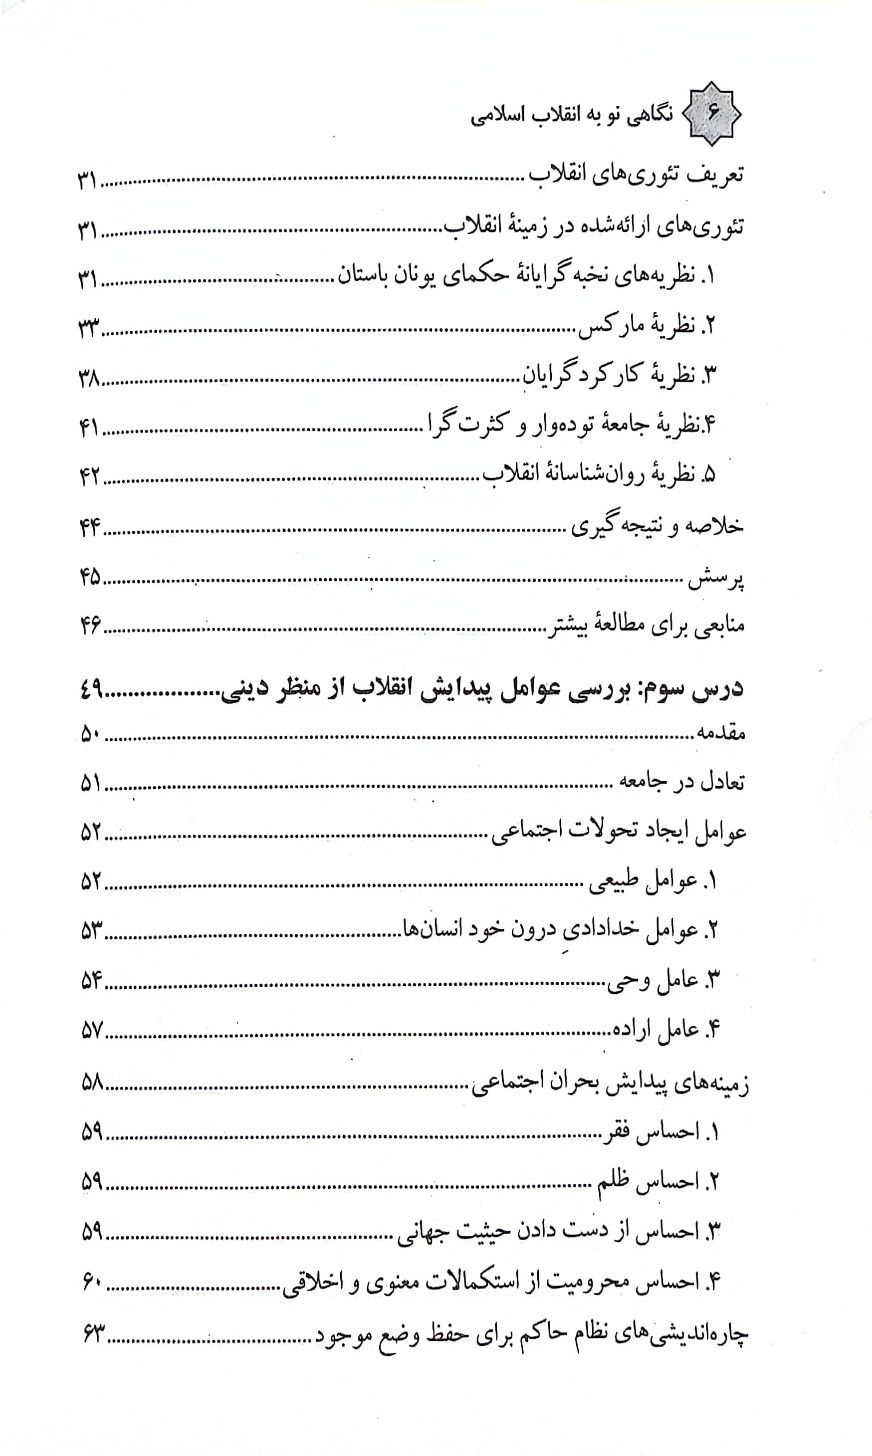 ۶ نگاهی نو به انقلاب اسلامی
تعریف تئوری‌های انقلاب ........ ۳۱
تئوری‌های ارائه‌شده در زمینهٔ انقلاب ........ ۳۱
۱. نظریه‌های نخبه‌گرایانهٔ حکمای یونان باستان ........ ۳۱
۲. نظریهٔ مارکس ........ ۳۳
۳. نظریهٔ کارکردگرایان ........ ۳۸
۴.نظریهٔ جامعهٔ توده‌وار و کثرت‌گرا ........ ۴۱
۵. نظریهٔ روان‌شناسانهٔ انقلاب ........ ۴۲
خلاصه و نتیجه‌گیری ........ ۴۴
پرسش ........ ۴۵
منابعی برای مطالعهٔ بیشتر ........ ۴۶
درس سوم: بررسی عوامل پیدایش انقلاب از منظر دینی ........ ۴۹
مقدمه ........ ۵۰
تعادل در جامعه ........ ۵۱
عوامل ایجاد تحولات اجتماعی ........ ۵۲
۱. عوامل طبیعی ........ ۵۲
۲. عوامل خدادادیِ درون خود انسان‌ها ........ ۵۳
۳. عامل وحی ........ ۵۴
۴. عامل اراده ........ ۵۷
زمینه‌های پیدایش بحران اجتماعی ........ ۵۸
۱. احساس فقر ........ ۵۹
۲. احساس ظلم ........ ۵۹
۳. احساس از دست دادن حیثیت جهانی ........ ۵۹
۴. احساس محرومیت از استکمالات معنوی و اخلاقی ........ ۶۰
چاره‌اندیشی‌های نظام حاکم برای حفظ وضع موجود ........ ۶۳